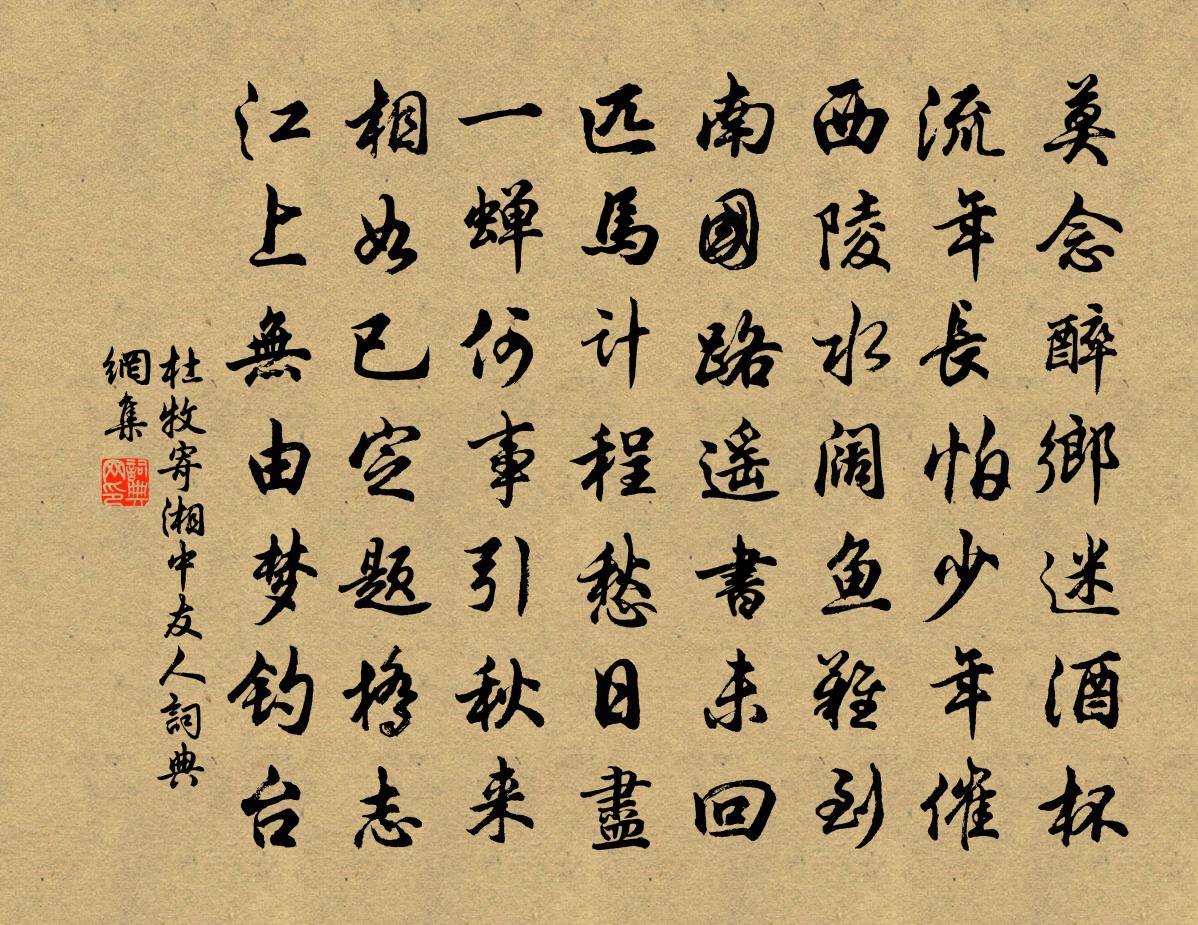 莫念醉鄉迷酒杯
流年長怕少年催
西陵水阔魚難到
南國路遥書未回
匹馬计程愁日盡
一蝉何事引秋来
相如已定题橋志
江上無由梦钓台
杜牧寄湘中友人詞典
網集
詞典網印